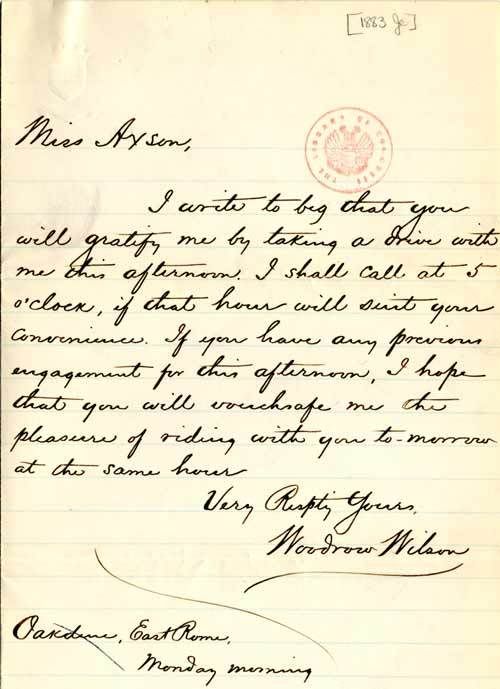 [1883 Je]
THE LIBRARY OF CONGRESS
Miss Axson,
I write to beg that you
will gratify me by taking a drive with
me this afternoon. I shall call at 5
o'clock, if that hour will suit your
convenience. If you have any previous
engagement for this afternoon, I hope
that you will vouchsafe me the
pleasure of riding with you to-morrow
at the same hour
Very Respt'y Yours,
Woodrow Wilson
Oakdene, East Rome,
Monday morning